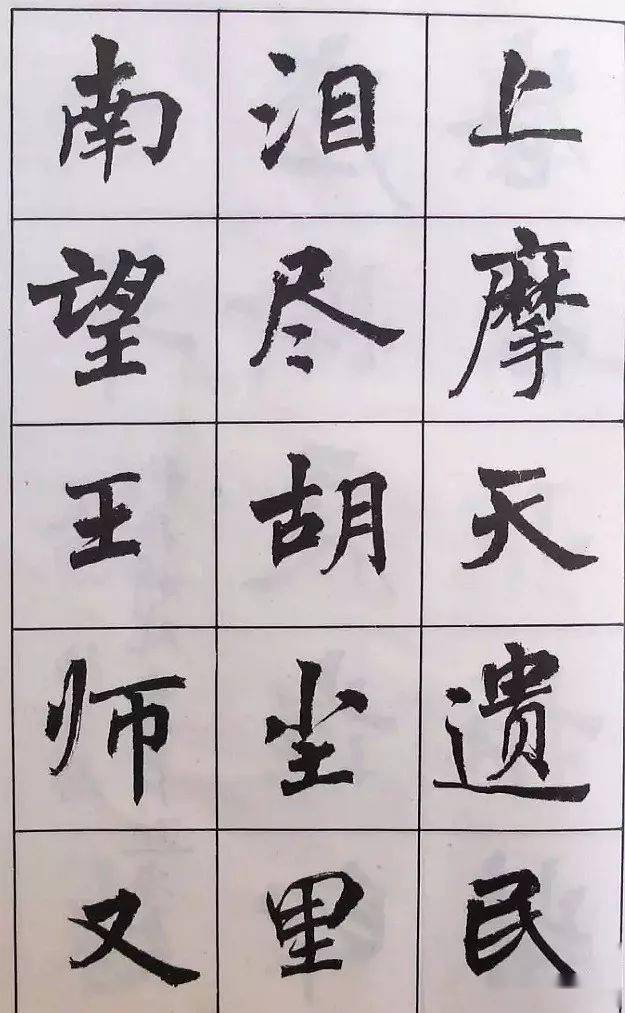 上摩天遗民
泪尽胡尘里
南望王师又